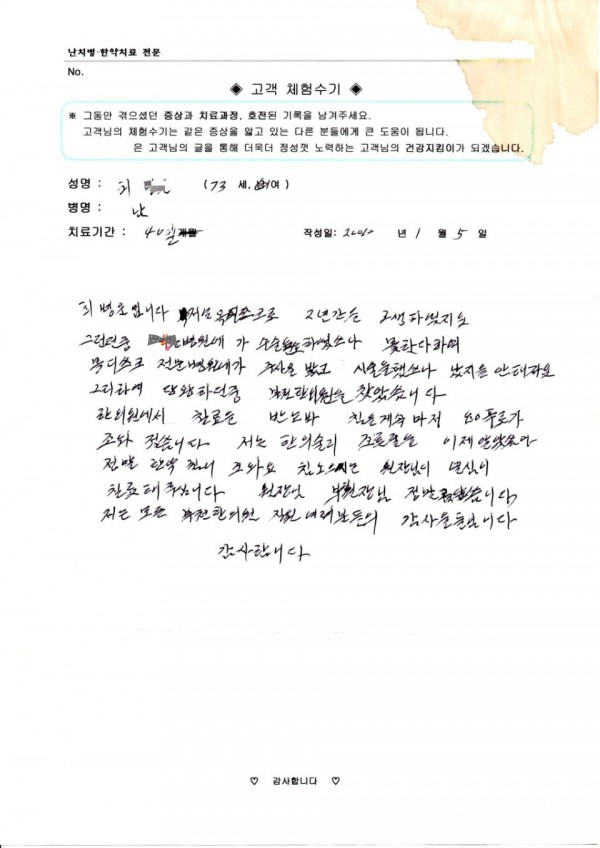 난치병·한약치료 전문
No.
◈ 고객 체험수기 ◈
※ 그동안 겪으셨던 증상과 치료과정, 호전된 기록을 남겨주세요.
고객님의 체험수기는 같은 증상을 앓고 있는 다른 분들에게 큰 도움이 됩니다.
은 고객님의 글을 통해 더욱더 정성껏 노력하는 고객님의 건강지킴이가 되겠습니다.
성명 : 최 (73 세, /여)
병명 :
치료기간 : 40일 작성일: 2010 년 1 월 5 일
입니다 저는 목디스크로 2년간는 고생하였지요
그런던중 병원에가 수술 하였으나 못한다하여
목디스크 전문병원에가 주사을 맞고 시술을했으나 낫지을 안터라고
그리하여 당황하던중 한의원을 찾았습니다
한의원에서 치료는 반도바 침을 계속 마저 80푸로가
조와 젔습니다 저는 한의술리 조흔줄을 이제 알았
정말 한약 조와요 원장님이 열심이
치료해 주십니다 원장님 부원장님 정말
저는 모든 한의원 직원 여레분들의 감사을 드립니다
감사합니다
♡ 감사합니다 ♡